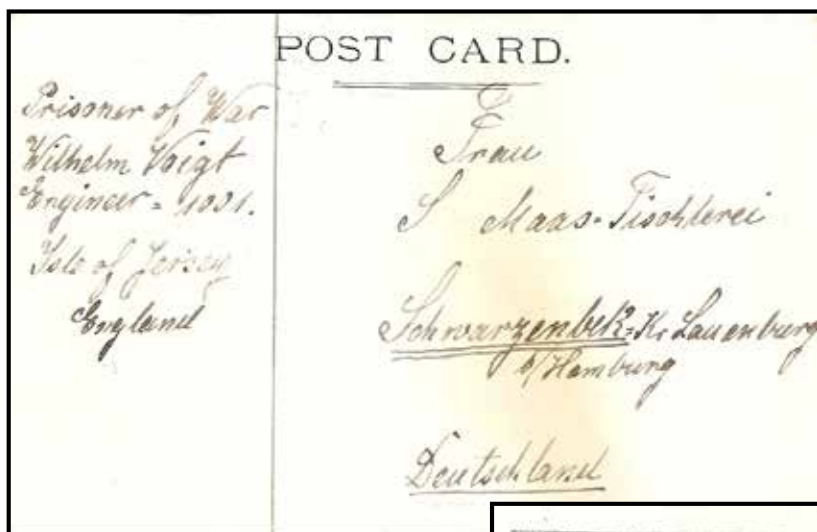 POST CARD.
Prissner of War
Wilhelm Voigt
Engineer = 1091.
Isle of Jersey
England
Frau
S Maas-Tischlerei
Schwarzenbek = Kr Lauenburg
b/Hamburg
Deutschland